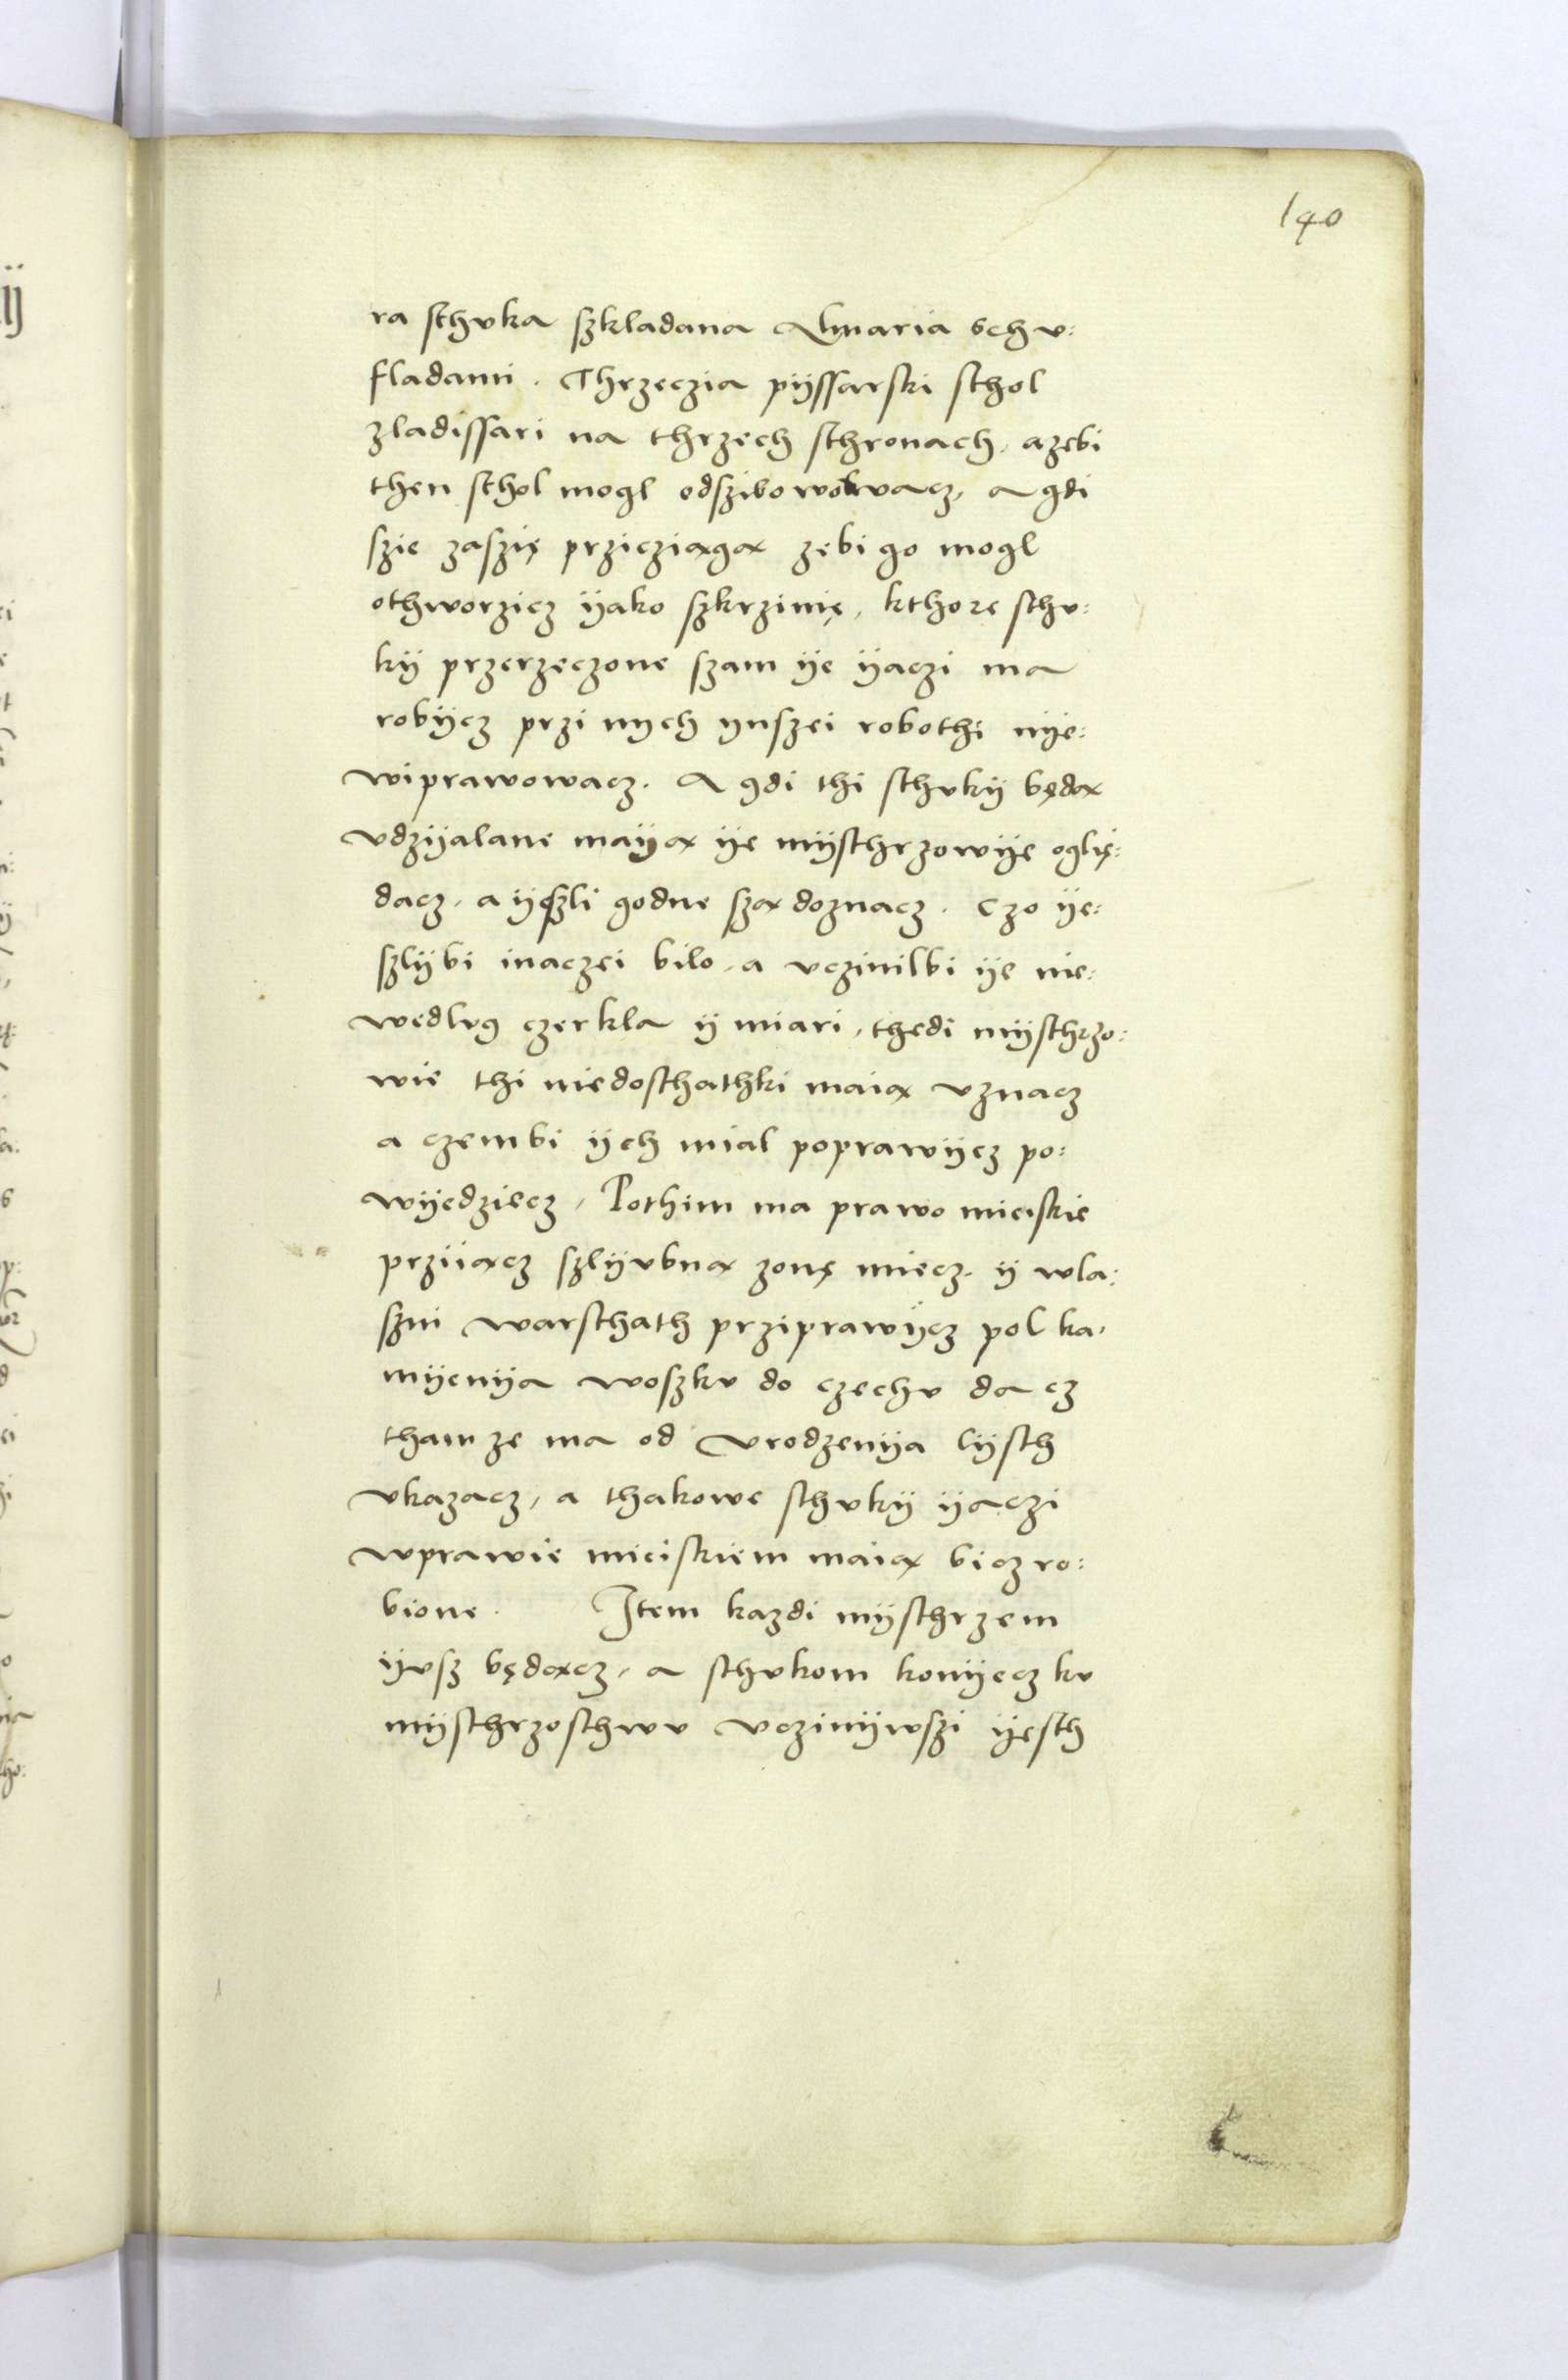 140
ra schvka szkladana Almaria schv:
fladami. Thrzeczia pÿssarski schol
zladissari na thrzech schronach, azebi
then schol mogl odszibowowacz, a gdi
szie zaszię przicziągą zebi go mogl
othworzicz ÿako szkrzinię, kthore schv:
kÿ przerzeczone szam ÿe ÿaczi ma
robÿcz przi nych ynszei robothi nÿe:
wiprawowacz. A gdi thi schvkÿ będą
vdzÿalane maÿą ÿe mÿschrzowÿe oglię:
dacz, a ÿeszli godne szą doznacz. Czo ÿe:
szlÿbi inaczei bilo, a vczinilbi ÿe nie:
wedlvg czerkla ÿ miari, thedi mÿschrzo:
wie thi niedoschathki maią vznacz
a czembi ÿch mial poprawÿcz po:
wÿedziecz, Pothim ma prawo mieiskie
prziiącz szlÿvbną zonę miecz, ÿ wla:
szni warschath prziprawÿcz pol ka,
mÿenÿa woszkv do czechv dacz
tham ze ma od vrodzenÿa lÿsth
vkazacz, a thakowe schvkÿ ÿaczi
wprawie mieiskiem maią bicz ro:
bione. Item kazdi mÿschrzem
ÿvsz będącz, a schvkom konÿecz kv
mÿschrzoschwv vczinÿwszi ÿesth